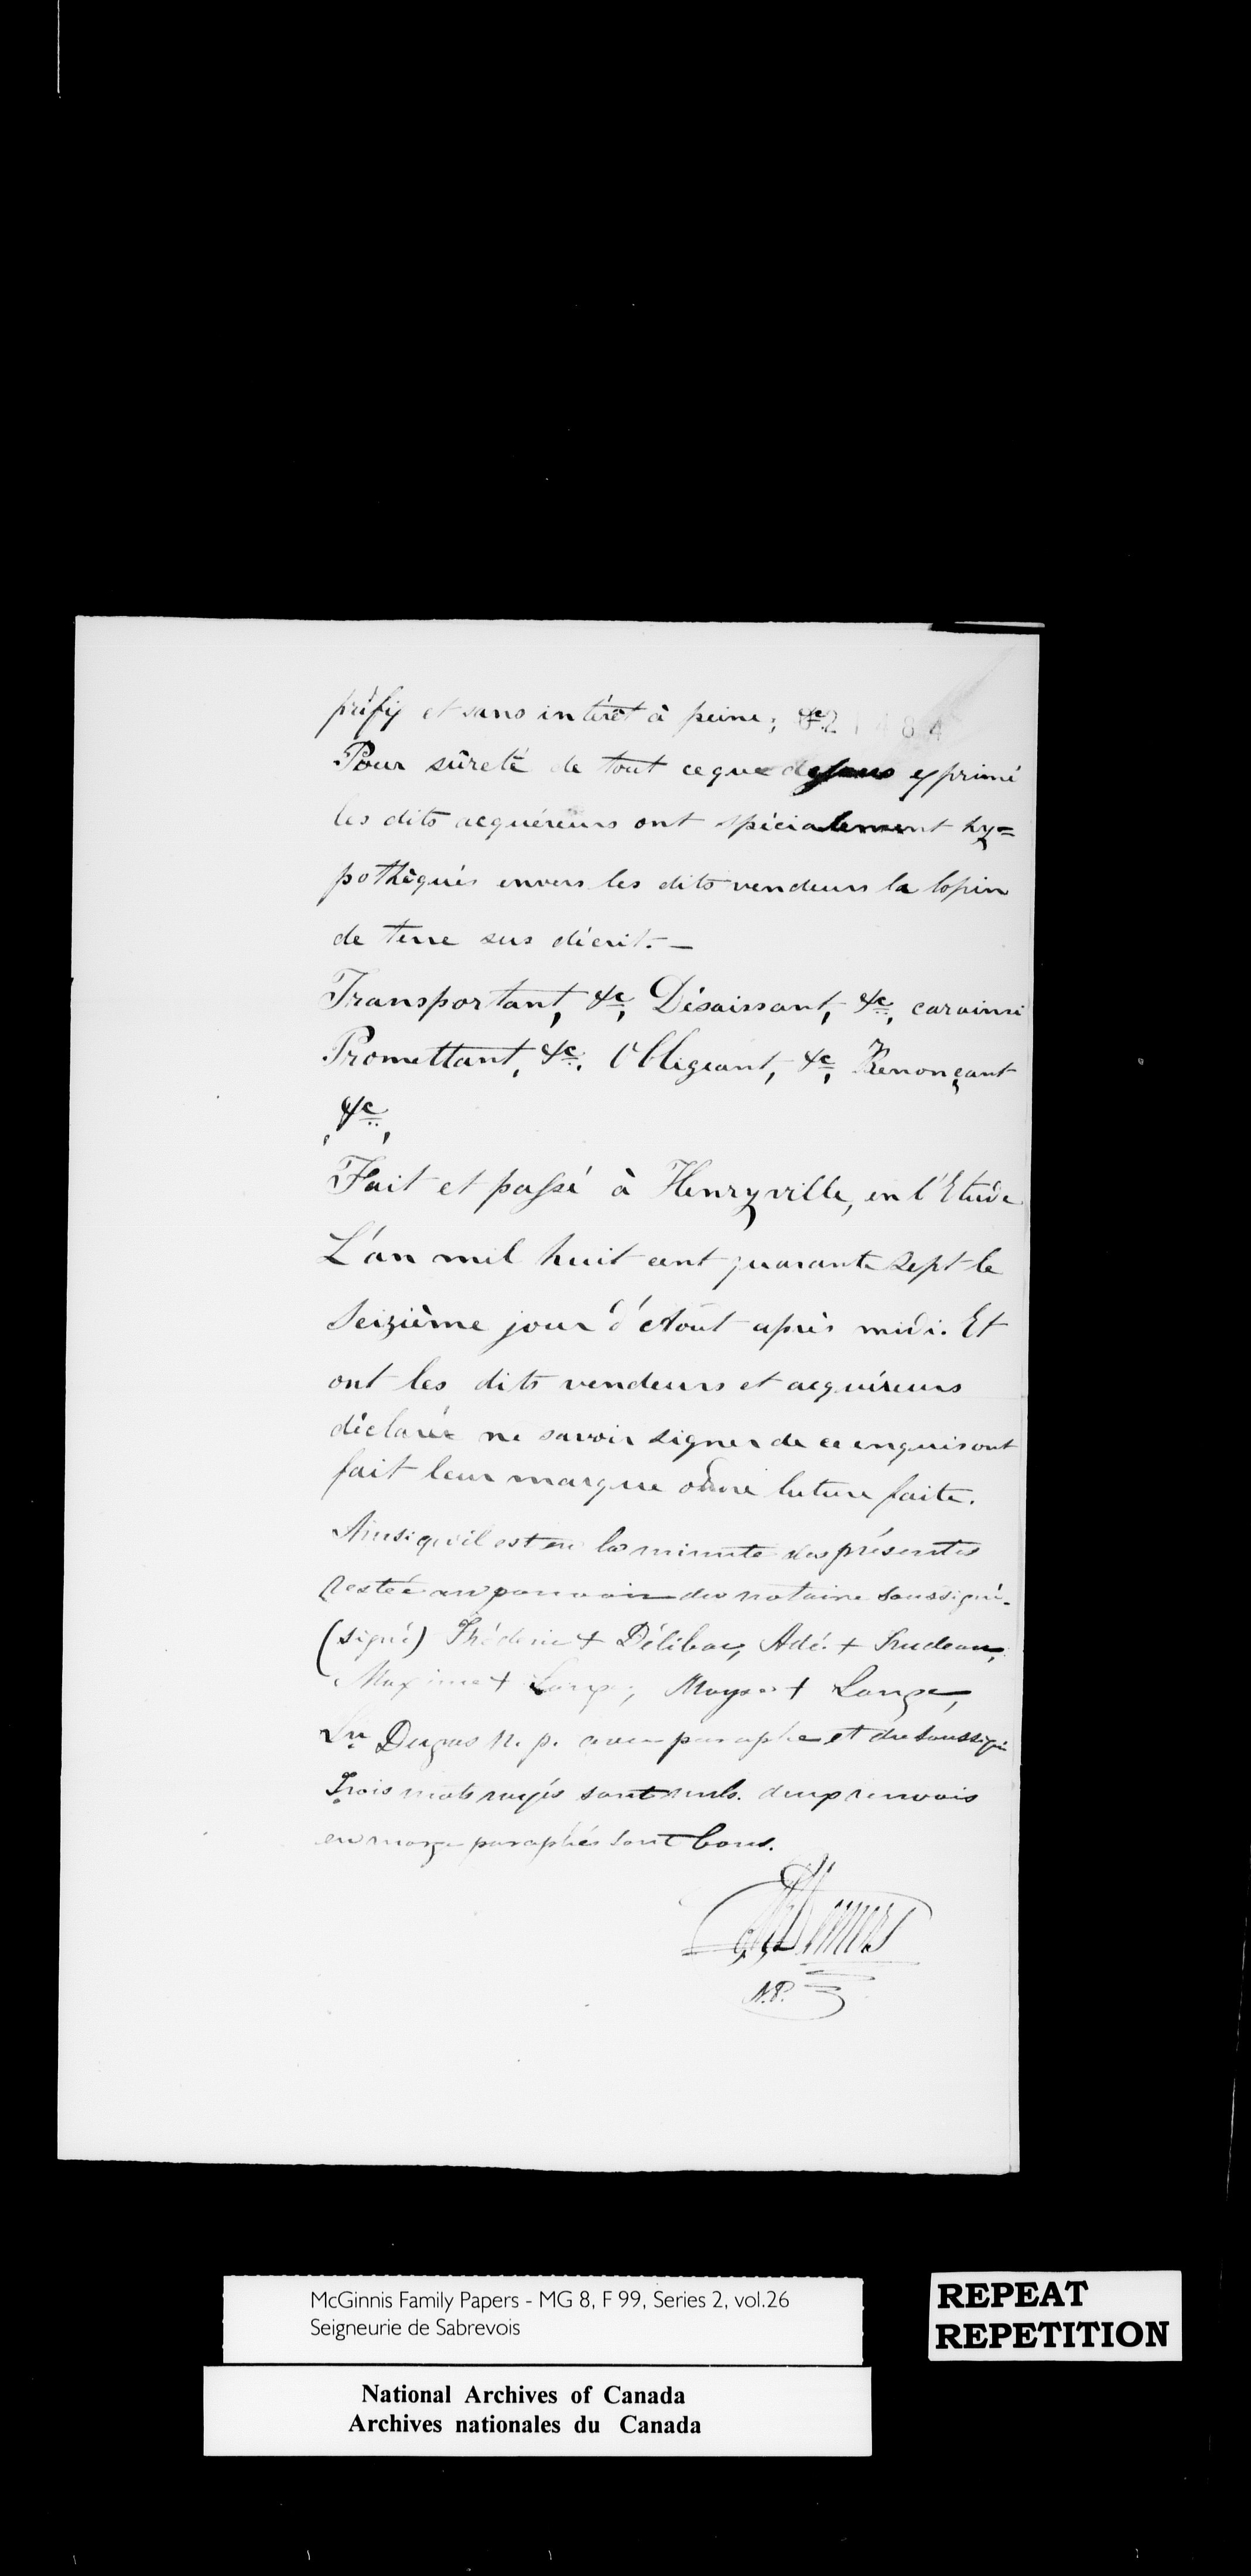 préfix et sans intérêt à peine; &c.
21484
Pour sûreté de tout ce que dessus exprimé
les dits acquéreurs ont spécialement hy=
pothéqués envers les dits vendeurs la lopin
de terre sus décrit. —
Transportant, &c, Désaissant, &c, car ainsi
Promettant, &c. Obligeant, &c, Renonçant
&c,
Fait et passé à Henryville, en l'Etude
L'an mil huit cent quarante sept le
Seizième jour d'Août après midi. Et
ont les dits vendeurs et acquéreurs
déclarée ne savoir signer de ce enquis ont
fait leur marque ordre lecture faite.
Ainsi qu'il est en la minute des présentes
restée au pouvoir du notaire soussigné.
(signé) Fréderic + Délibac, Adé. + Trudeau,
Maxime + Lange, Moyse + Lange,
Ln Dugas N. p. avec paraphe et du soussigné
Trois mots rayés sont nuls. deux renvois
en marge paraphés sont bons.
Demers
N.P.
McGinnis Family Papers - MG 8, F 99, Series 2, vol.26
Seigneurie de Sabrevois
REPEAT
REPETITION
National Archives of Canada
Archives nationales du Canada